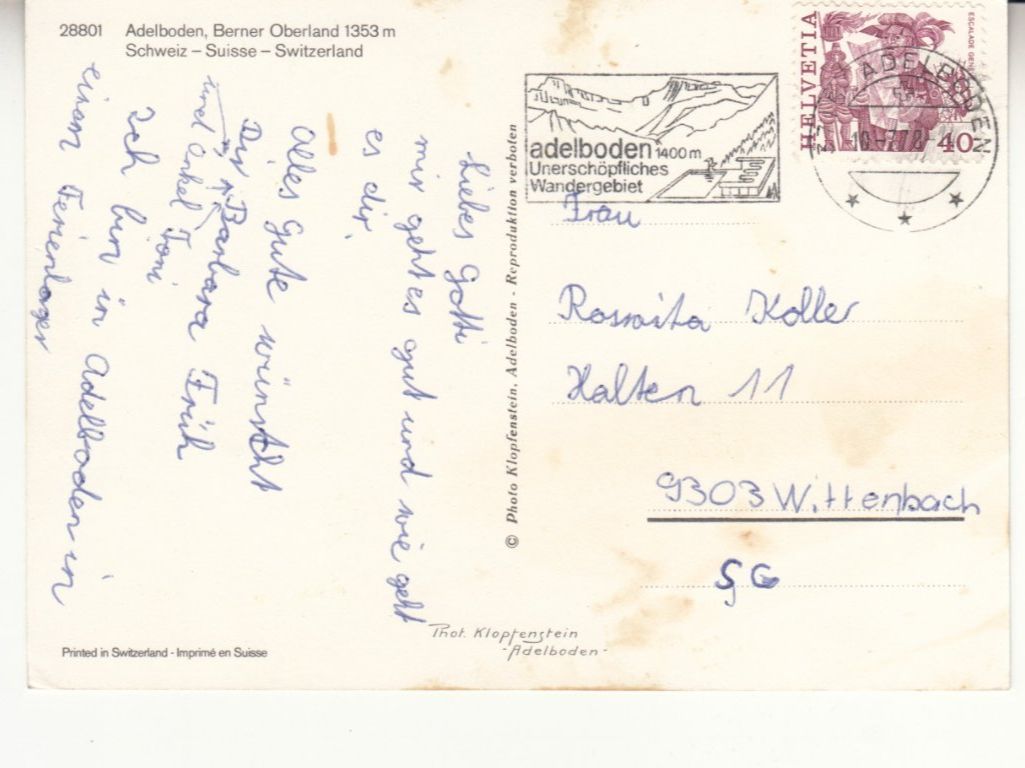 28801 Adelboden, Berner Oberland 1353 m
Schweiz – Suisse – Switzerland
Liebes Gotti
mir geht es gut und wie geht
es dir.
Alles Gute wünscht
Dir Barbara Früh
und Onkel Toni
Ich bin in Adelboden in
einem Ferienlager
© Photo Klopfenstein, Adelboden - Reproduktion verboten
adelboden 1400 m
Unerschöpfliches
Wandergebiet
HELVETIA
ESCALADE
40
ADELBODEN
Frau
Roswita Koller
Halten 11
9303 Wittenbach
SG
Phot. Klopfenstein
- Adelboden -
Printed in Switzerland - Imprimé en Suisse